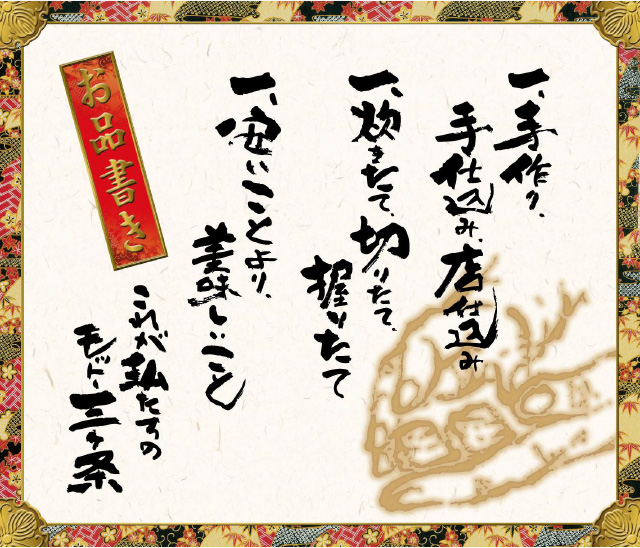 一、手作り、
手仕込み、店仕込み
一、炊きたて、切りたて、
握りたて
一、安いことより、
美味しいこと
これが私たちの
モットー三ヶ条
お品書き